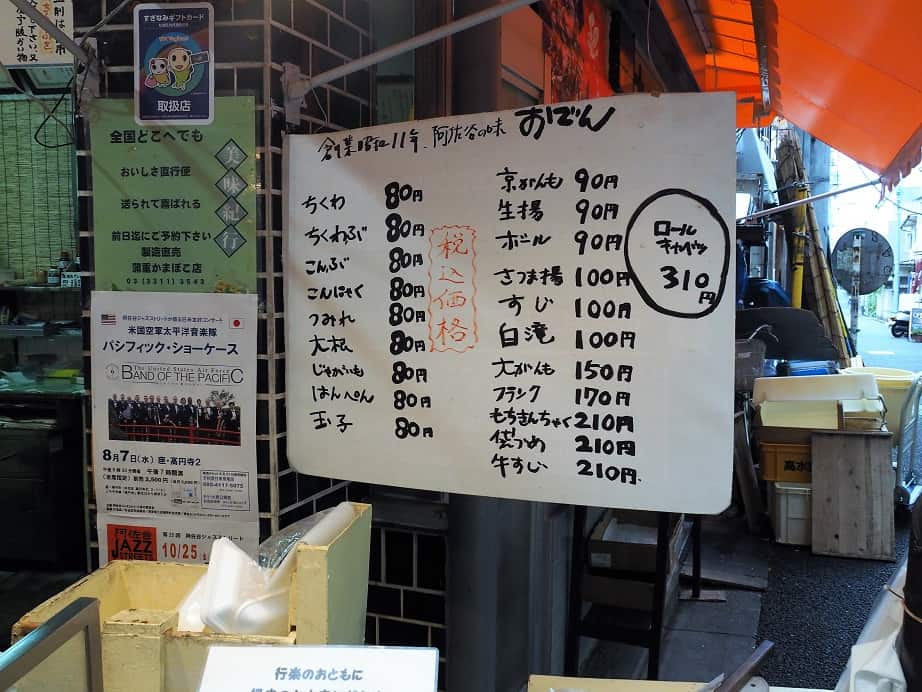 すぎなみギフトカード
取扱店
全国どこへでも
おいしさ直行便
送られて喜ばれる
前日迄にご予約下さい
製造直売
蒲重かまぼこ店
03 (3311) 3543
美味紀行
阿佐谷ジャズストリートが贈る日米友好コンサート
米国空軍太平洋音楽隊
パシフィック・ショーケース
The United States Air Force
BAND OF THE PACIFIC
8月7日(水) 座・高円寺2
阿佐谷
JAZZ
STREETS
第25回 阿佐谷ジャズストリート
10/25
創業昭和11年、阿佐谷の味 おでん
ちくわ 80円
ちくわぶ 80円
こんぶ 80円
こんにゃく 80円
つみれ 80円
大根 80円
じゃがいも 80円
はんぺん 80円
玉子 80円
税込価格
京がんも 90円
生揚 90円
ボール 90円
さつま揚 100円
すじ 100円
白滝 100円
大がんも 150円
フランク 170円
もちきんちゃく 210円
袋つめ 210円
牛すじ 210円.
ロール
キャベツ
310
円
高水
行楽のおともに